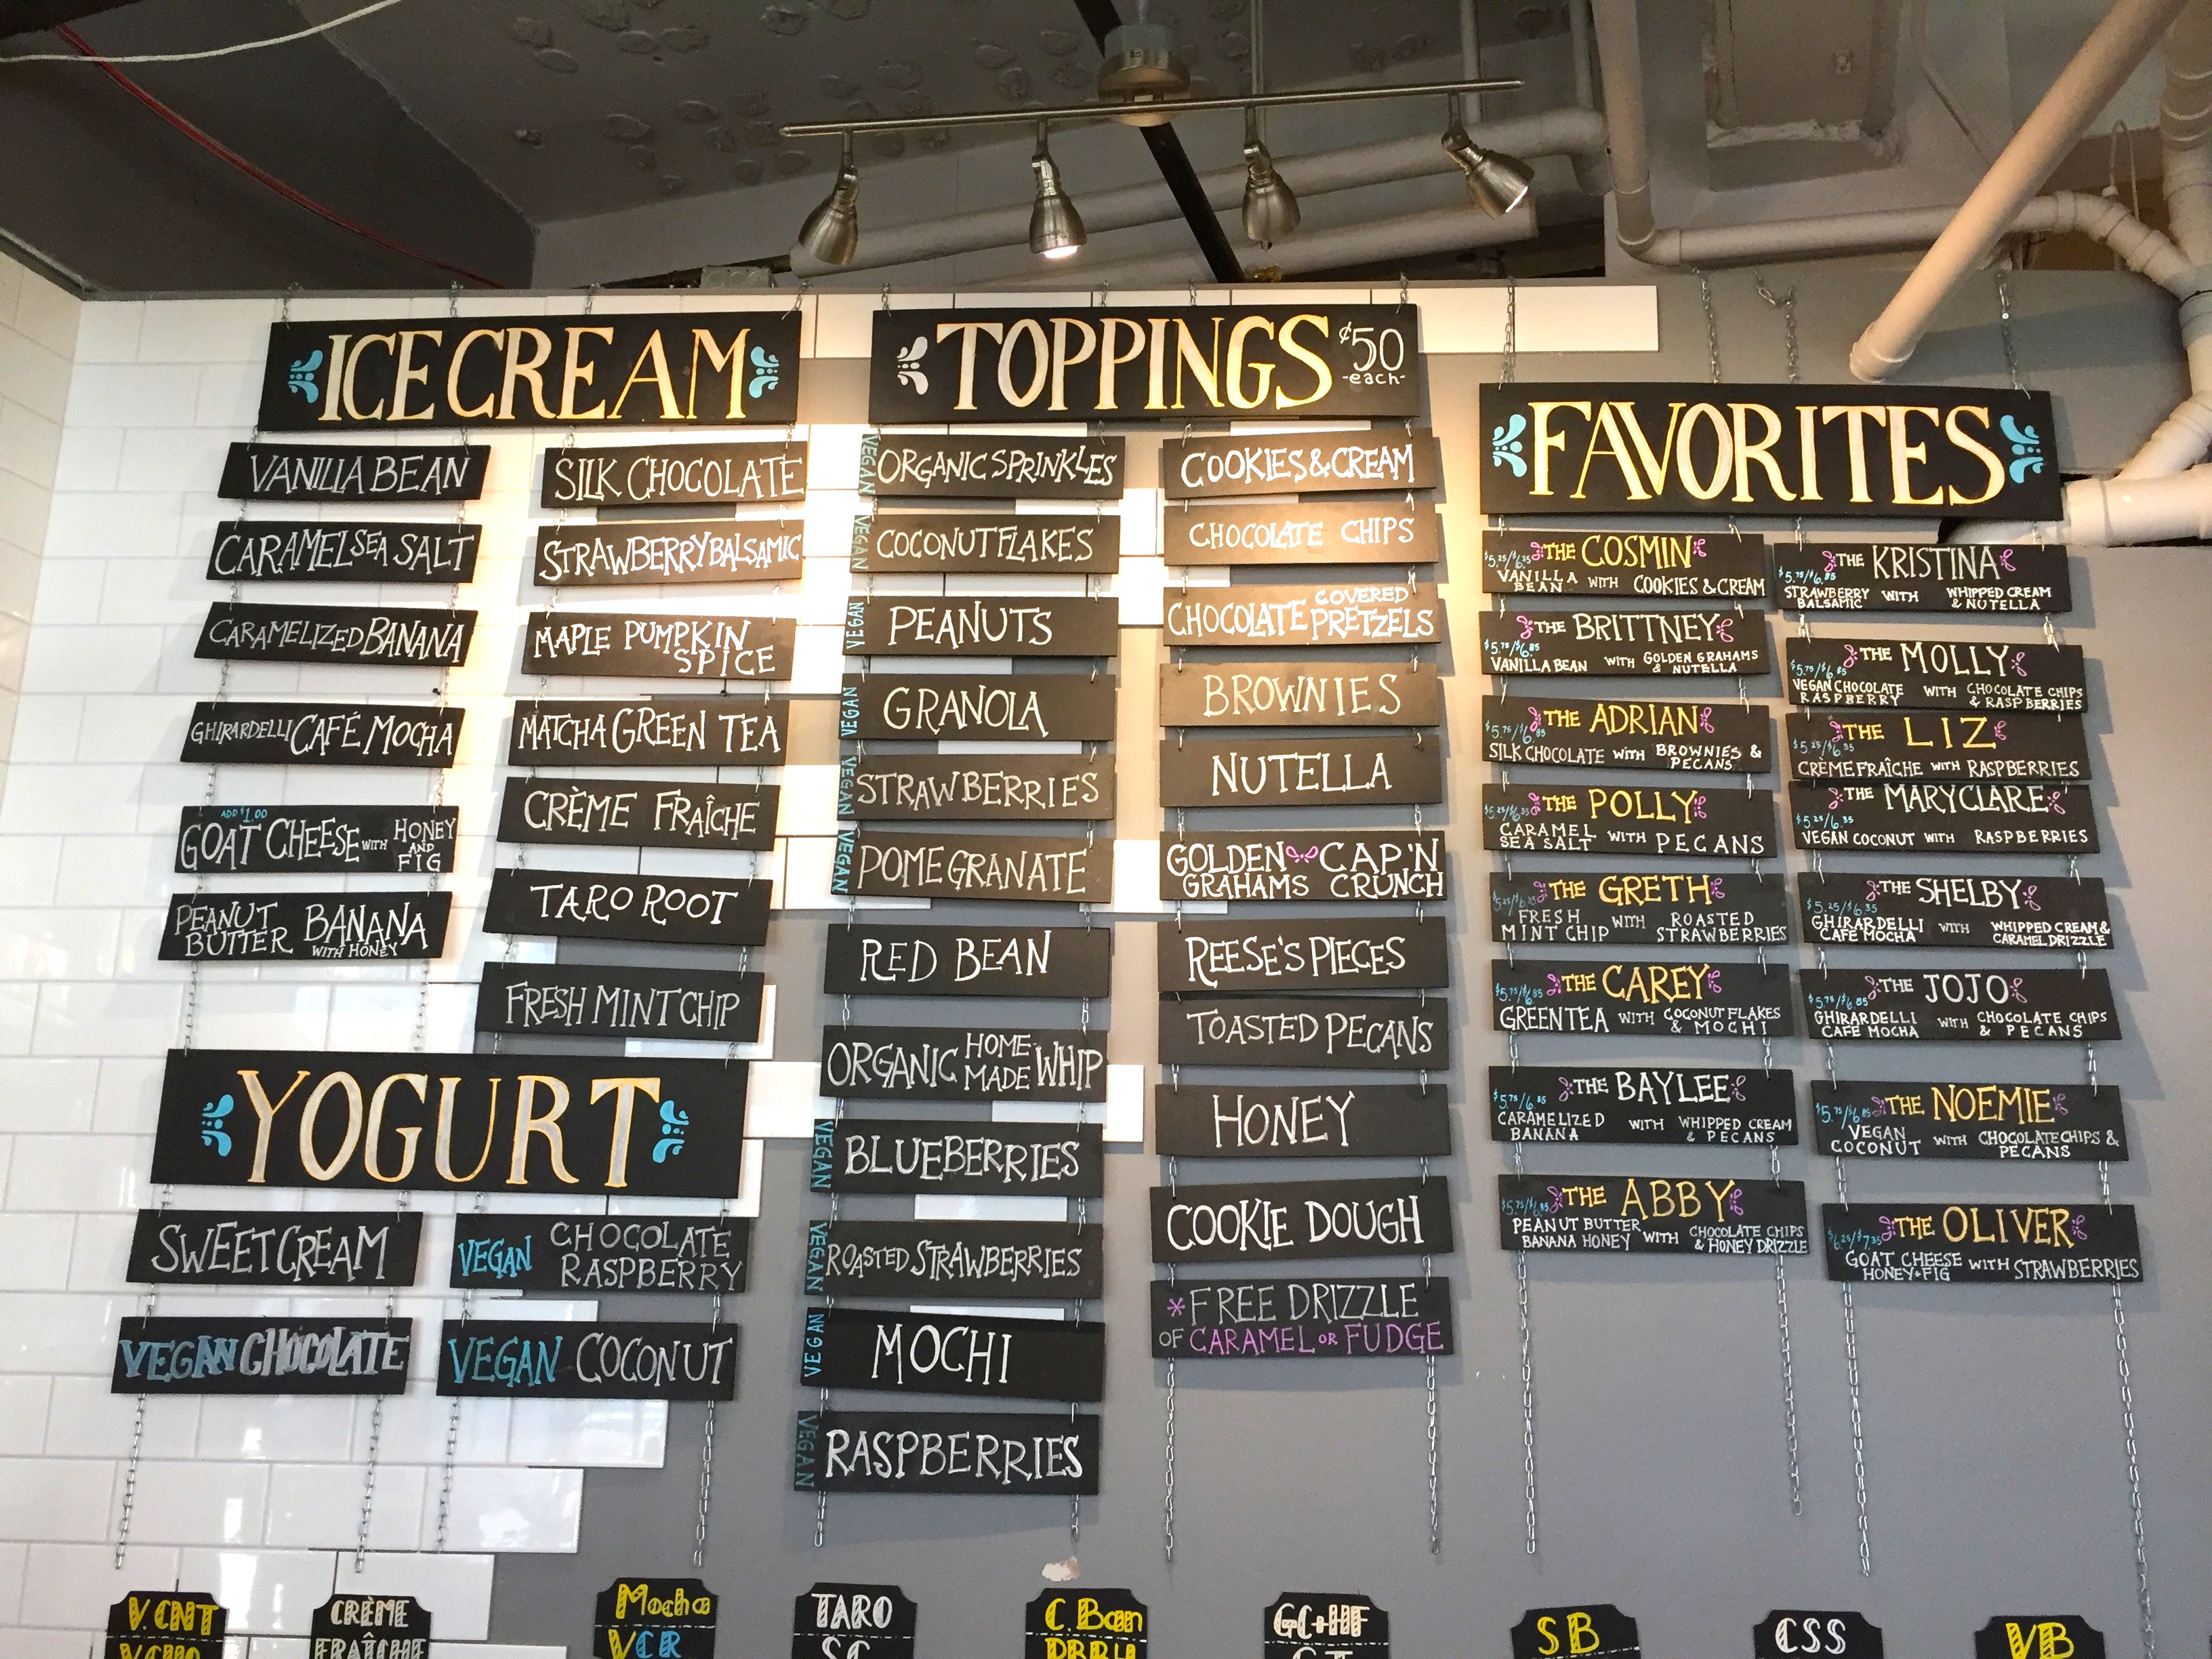 ICE CREAM
VANILLA BEAN
CARAMEL SEA SALT
CARAMELIZED BANANA
GHIRARDELLI CAFÉ MOCHA
ADD $1.00
GOAT CHEESE WITH HONEY AND FIG
PEANUT BUTTER BANANA
WITH HONEY
SILK CHOCOLATE
STRAWBERRY BALSAMIC
MAPLE PUMPKIN
SPICE
MATCHA GREEN TEA
CRÈME FRAÎCHE
TARO ROOT
FRESH MINT CHIP
YOGURT
SWEET CREAM
VEGAN CHOCOLATE
VEGAN CHOCOLATE RASPBERRY
VEGAN COCONUT
TOPPINGS ¢50
-each-
VEGAN ORGANIC SPRINKLES
VEGAN COCONUT FLAKES
VEGAN PEANUTS
VEGAN GRANOLA
VEGAN STRAWBERRIES
VEGAN POMEGRANATE
RED BEAN
ORGANIC HOME MADE WHIP
VEGAN BLUEBERRIES
VEGAN ROASTED STRAWBERRIES
VEGAN MOCHI
VEGAN RASPBERRIES
COOKIES & CREAM
CHOCOLATE CHIPS
CHOCOLATE COVERED PRETZELS
BROWNIES
NUTELLA
GOLDEN GRAHAMS CAP'N CRUNCH
REESE'S PIECES
TOASTED PECANS
HONEY
COOKIE DOUGH
*FREE DRIZZLE
OF CARAMEL OR FUDGE
FAVORITES
$5.25/$6.35 THE COSMIN
VANILLA BEAN WITH COOKIES & CREAM
$5.75/$6.85 THE BRITTNEY
VANILLA BEAN WITH GOLDEN GRAHAMS & NUTELLA
$5.75/$6.85 THE ADRIAN
SILK CHOCOLATE WITH BROWNIES & PECANS
$5.25/$6.35 THE POLLY
CARAMEL SEA SALT WITH PECANS
$5.25/$6.35 THE GRETH
FRESH MINT CHIP WITH ROASTED STRAWBERRIES
$5.75/$6.85 THE CAREY
GREEN TEA WITH COCONUT FLAKES & MOCHI
$5.75/$6.85 THE BAYLEE
CARAMELIZED BANANA WITH WHIPPED CREAM & PECANS
$5.75/$6.85 THE ABBY
PEANUT BUTTER BANANA HONEY WITH CHOCOLATE CHIPS & HONEY DRIZZLE
$5.75/$6.85 THE KRISTINA
STRAWBERRY BALSAMIC WITH WHIPPED CREAM & NUTELLA
$5.75/$6.85 THE MOLLY
VEGAN CHOCOLATE RASPBERRY WITH CHOCOLATE CHIPS & RASPBERRIES
$5.25/$6.35 THE LIZ
CRÈME FRAÎCHE WITH RASPBERRIES
$5.25/$6.35 THE MARYCLARE
VEGAN COCONUT WITH RASPBERRIES
$5.25/$6.35 THE SHELBY
GHIRARDELLI CAFÉ MOCHA WITH WHIPPED CREAM & CARAMEL DRIZZLE
$5.75/$6.85 THE JOJO
GHIRARDELLI CAFÉ MOCHA WITH CHOCOLATE CHIPS & PECANS
$5.75/$6.85 THE NOEMIE
VEGAN COCONUT WITH CHOCOLATE CHIPS & PECANS
$6.25/$7.35 THE OLIVER
GOAT CHEESE HONEY+FIG WITH STRAWBERRIES
V.CNT
CRÈME
FRAÎCHE
Mocha
VCR
TARO
S.C
C.Ban
GC+HF
SB
CSS
VB